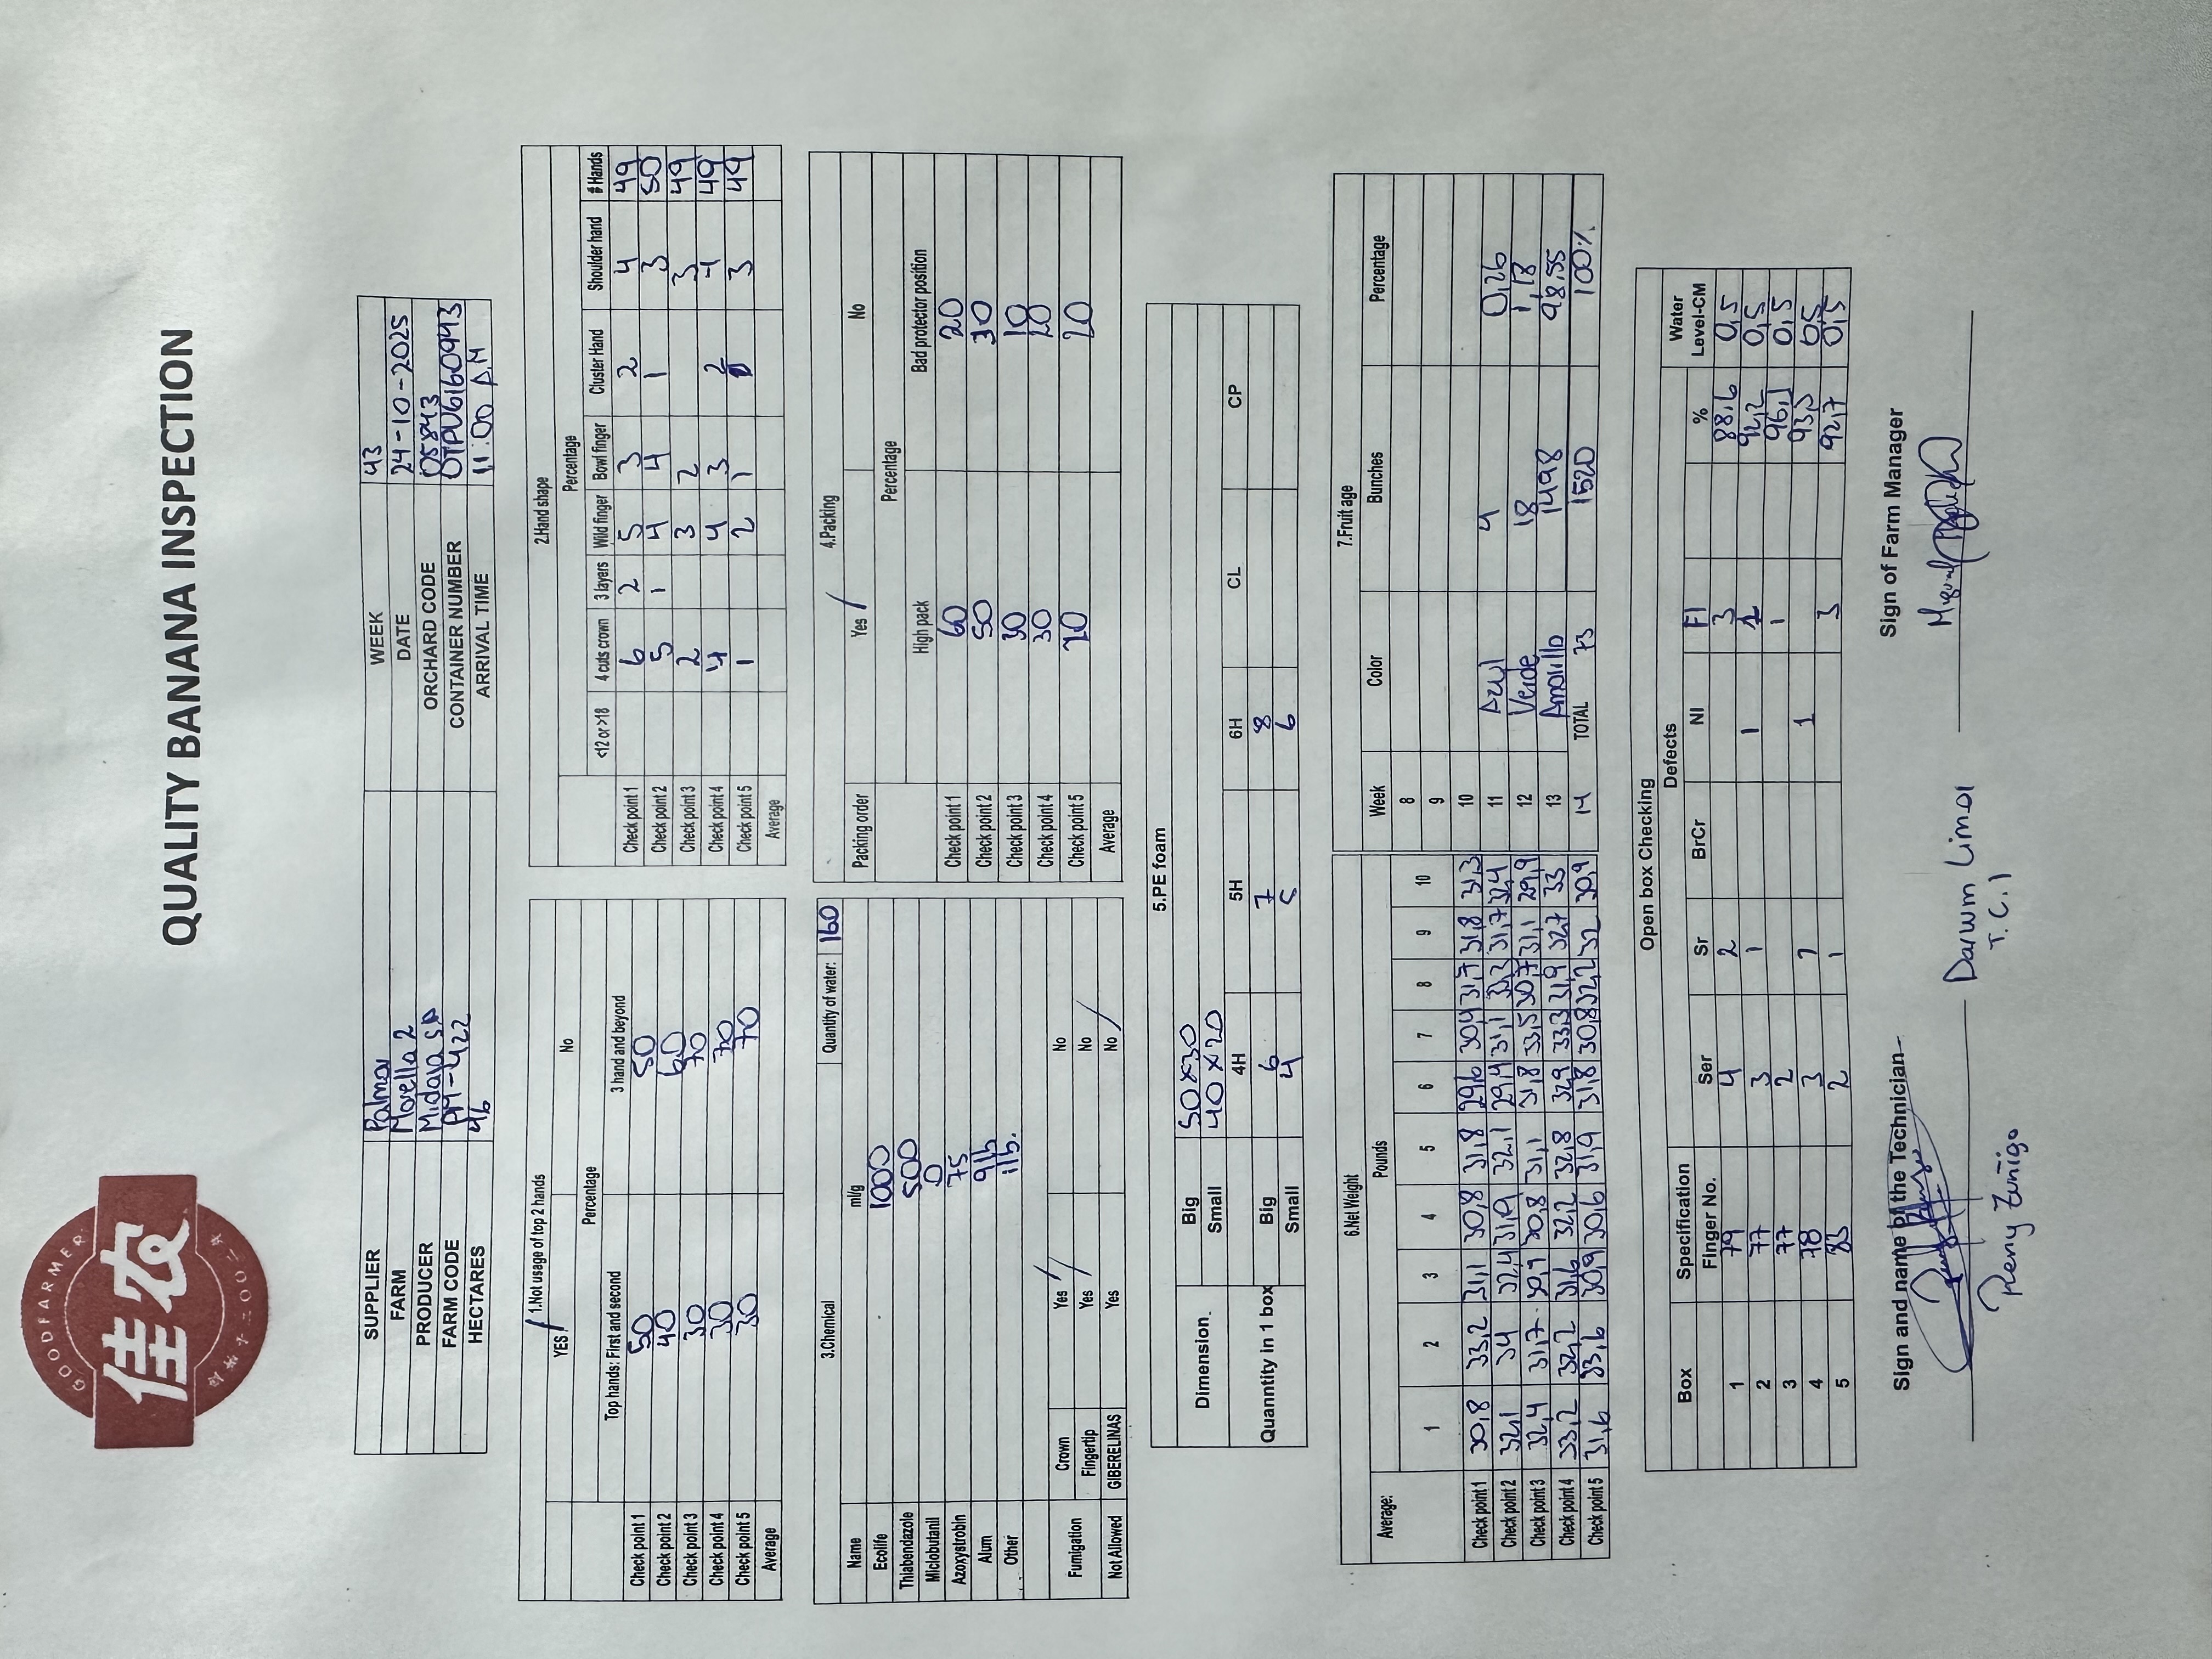 GOODFARMER
佳农
创始于二〇〇二年
QUALITY BANANA INSPECTION
SUPPLIER Palmar WEEK 43
FARM Morella 2 DATE 24-10-2025
PRODUCER Midaja S.A ORCHARD CODE 05843
FARM CODE PM-422 CONTAINER NUMBER OTPU6160943
HECTARES 46 ARRIVAL TIME 11:00 A.M
1.Not usage of top 2 hands
YES / No
Percentage
Top hands: First and second 3 hand and beyond
Check point 1 50 50
Check point 2 40 60
Check point 3 30 70
Check point 4 30 70
Check point 5 30 70
Average
2.Hand shape
Percentage
<12 or >18 4 cuts crown 3 layers Wild finger Bowl finger Cluster Hand Shoulder hand # Hands
Check point 1 6 2 5 3 2 4 49
Check point 2 5 1 4 4 1 3 50
Check point 3 2 3 2 3 49
Check point 4 4 4 3 2 4 49
Check point 5 1 2 1 3 49
Average
3.Chemical Quantity of water: 160
Name ml/g
Ecolife 1000
Thiabendazole 500
Miclobutanil 0
Azoxystrobin 75
Alum 9lb
Other 1lb.
Fumigation Crown Yes / No
Fingertip Yes / No
Not Allowed GIBERELINAS Yes No /
4.Packing
Packing order Yes / No
Percentage
High pack Bad protector position
Check point 1 60 20
Check point 2 50 30
Check point 3 30 10
Check point 4 30 20
Check point 5 20 20
Average
5.PE foam
Dimension Big 50x30
Small 40x20
4H 5H 6H CL CP
Quanntity in 1 box Big 6 7 8
Small 4 5 6
6.Net Weight
Average: Pounds
1 2 3 4 5 6 7 8 9 10
Check point 1 30,8 33,2 31,1 30,8 31,8 29,6 30,4 31,7 31,8 31,3
Check point 2 32,1 34 32,4 31,9 32,1 29,4 31,1 33,3 31,7 32,4
Check point 3 32,4 31,7 30,9 30,8 31,1 31,8 33,5 30,7 31,1 29,9
Check point 4 33,2 32,2 31,6 32,2 32,8 32,9 33,3 31,9 32,7 33
Check point 5 31,6 33,6 30,9 30,6 31,9 31,8 30,8 32,2 32 30,9
7.Fruit age
Week Color Bunches Percentage
8
9
10
11 Azul 4 0,26
12 Verde 18 1,18
13 Amarillo 1498 98,55
14 TOTAL 73 1520 100%
Open box Checking
Box Specification Defects Water
Finger No. Ser Sr BrCr NI FI % Level-CM
1 79 4 2 3 88,6 0,5
2 77 3 1 1 1 92,2 0,5
3 77 2 1 96,1 0,5
4 78 3 1 1 93,5 0,5
5 83 2 1 3 92,7 0,5
Sign and name of the Technician Sign of Farm Manager
Darwin Limai
T.C.I
Reny Zuñiga
Miguel